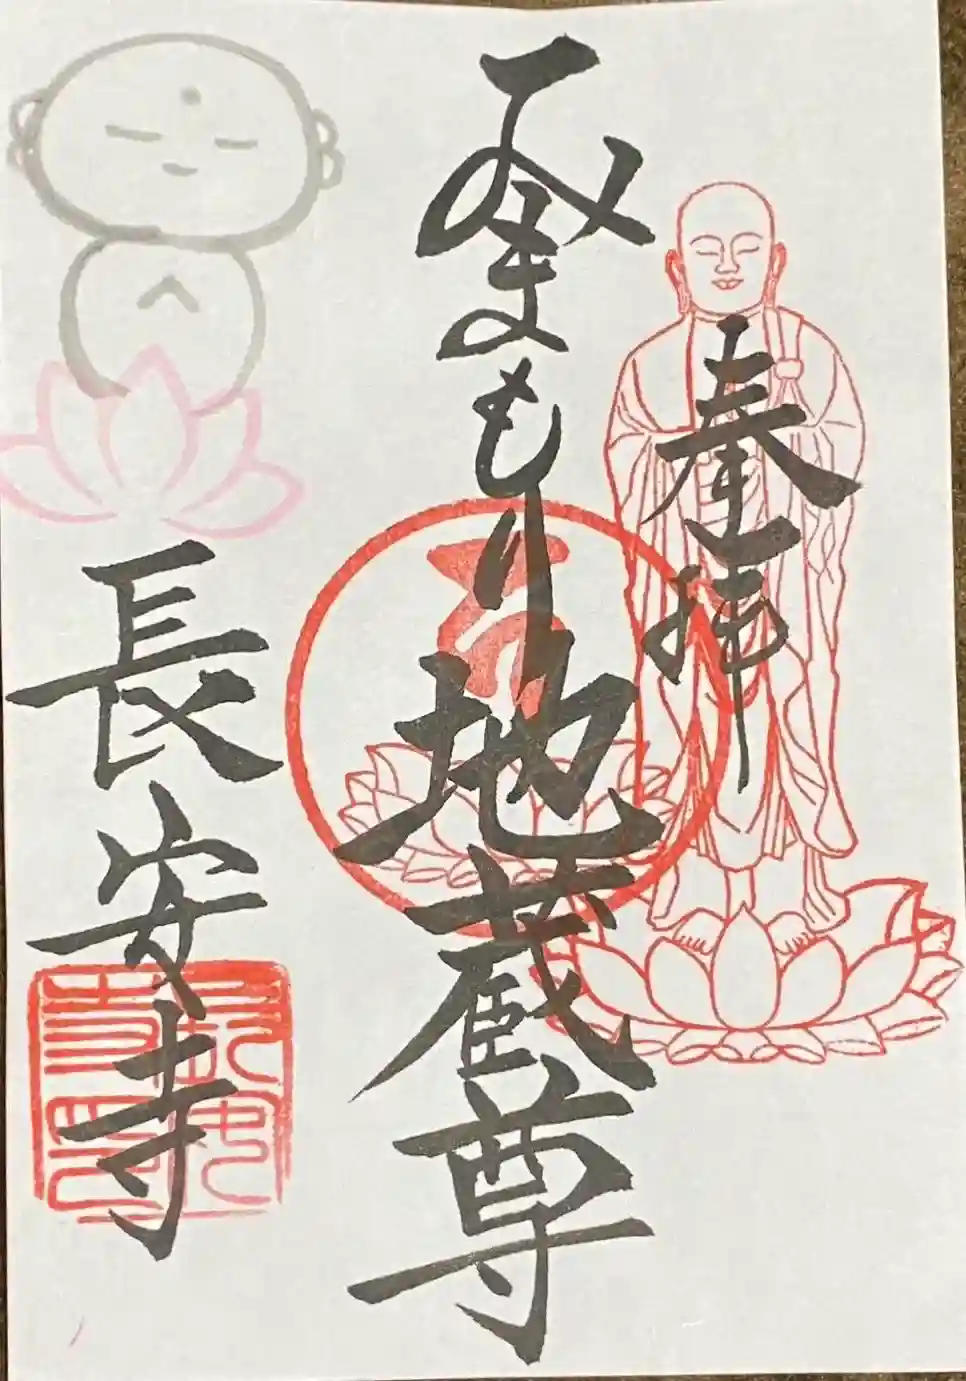 奉拝
まもり地蔵尊
長安寺
長安
寺印